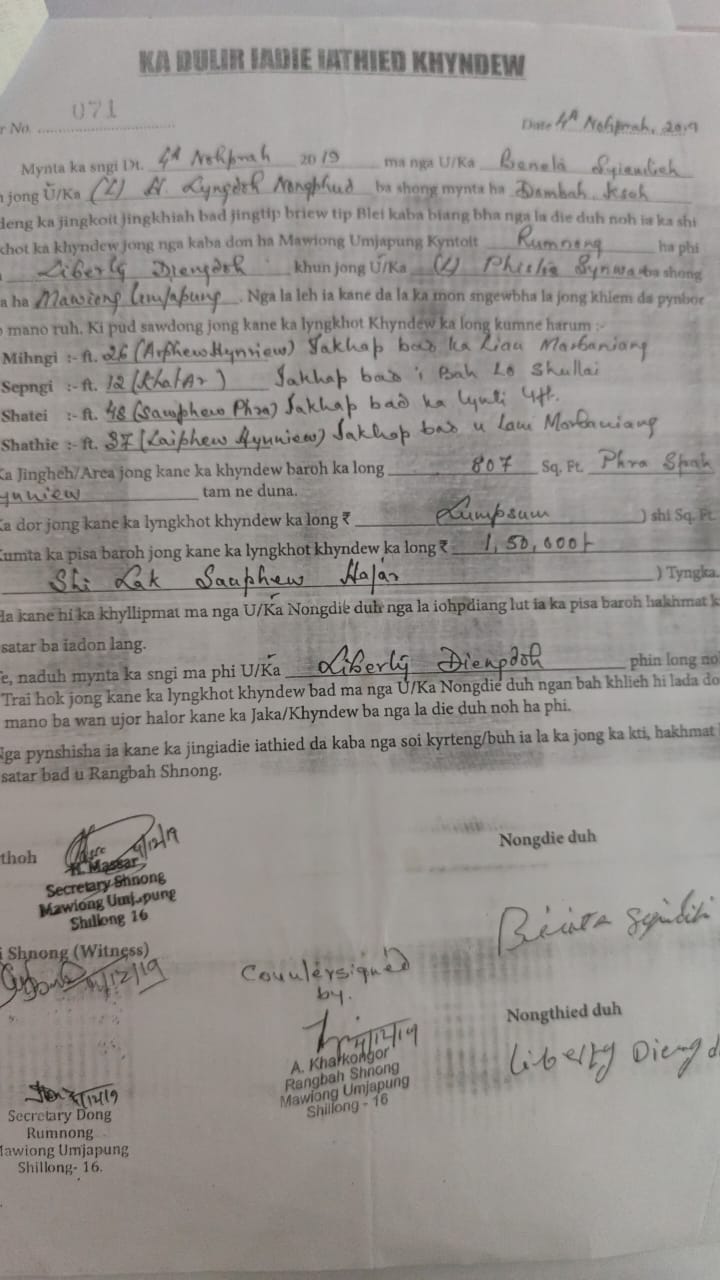 KA DULIR IADIE IATHIED KHYNDEW
r No. 071
Date 4th Nohprah, 2019
Mynta ka sngi Dt. 4th Nohprah 2019 ma nga U/Ka
jong U/Ka (L) H. Lyngdoh Nongphud ba shong mynta ha Dambah Ksoh
deng ka jingkoit jingkhiah bad jingtip briew tip Blei kaba biang bha nga la die duh noh ia ka shi
khot ka khyndew jong nga kaba don ha Mawiong Umjapung Kyntoit Rumnong ha phi
Liberty Diengdoh khun jong U/Ka (L) ba shong
a ha Mawiong Umjapung. Nga la leh ia kane da la ka mon sngewbha la jong khlem da pynbor
mano ruh. Ki pud sawdong jong kane ka lyngkhot Khyndew ka long kumne harum :-
Mihngi :- ft. 26 (Arphew Hynriew) Jakhap bad ka Lian Marbaniang
Sepngi :- ft. 12 (Khat Ar) Jakhap bad i Bah Lo Shullai
Shatei :- ft. 48 (Sawphew Phra) Jakhap bad ka Lynti 4ft.
Shathie :- ft. 37 (Laiphew Hynniew) Jakhap bad u Lam Marbaniang
Ka Jingheh/Area jong kane ka khyndew baroh ka long 807 Sq. Ft. Phra Spah
ynniew tam ne duna.
Ka dor jong kane ka lyngkhot khyndew ka long ₹ Lumpsum ) shi Sq. Ft.
Kumta ka pisa baroh jong kane ka lyngkhot khyndew ka long ₹ 1,50,000/-
Shi Lak Sanphew Hajar ) Tyngka.
Ha kane hi ka khyllipmat ma nga U/Ka Nongdie duh nga la iohpdiang lut ia ka pisa baroh hakhmat k
satar ba iadon lang.
e, naduh mynta ka sngi ma phi U/Ka Liberty Diengdoh phin long no
Trai hok jong kane ka lyngkhot khyndew bad ma nga U/Ka Nongdie duh ngan bah khlieh hi lada do
mano ba wan ujor halor kane ka Jaka/Khyndew ba nga la die duh noh ha phi.
Nga pynshisha ia kane ka jingiadie iathied da kaba nga soi kyrteng/buh ia la ka jong ka kti, hakhmat
satar bad u Rangbah Shnong.
thoh
4/12/19
Massar
Secretary Shnong
Mawiong Umjapung
Shillong 16
Nongdie duh
i Shnong (Witness)
4/12/19
Countersigned
by.
4/12/19
A. Kharkongor
Rangbah Shnong
Mawiong Umjapung
Shillong - 16
Nongthied duh
Liberty Diengd
4/12/19
Secretary Dong
Rumnong
Mawiong Umjapung
Shillong- 16.